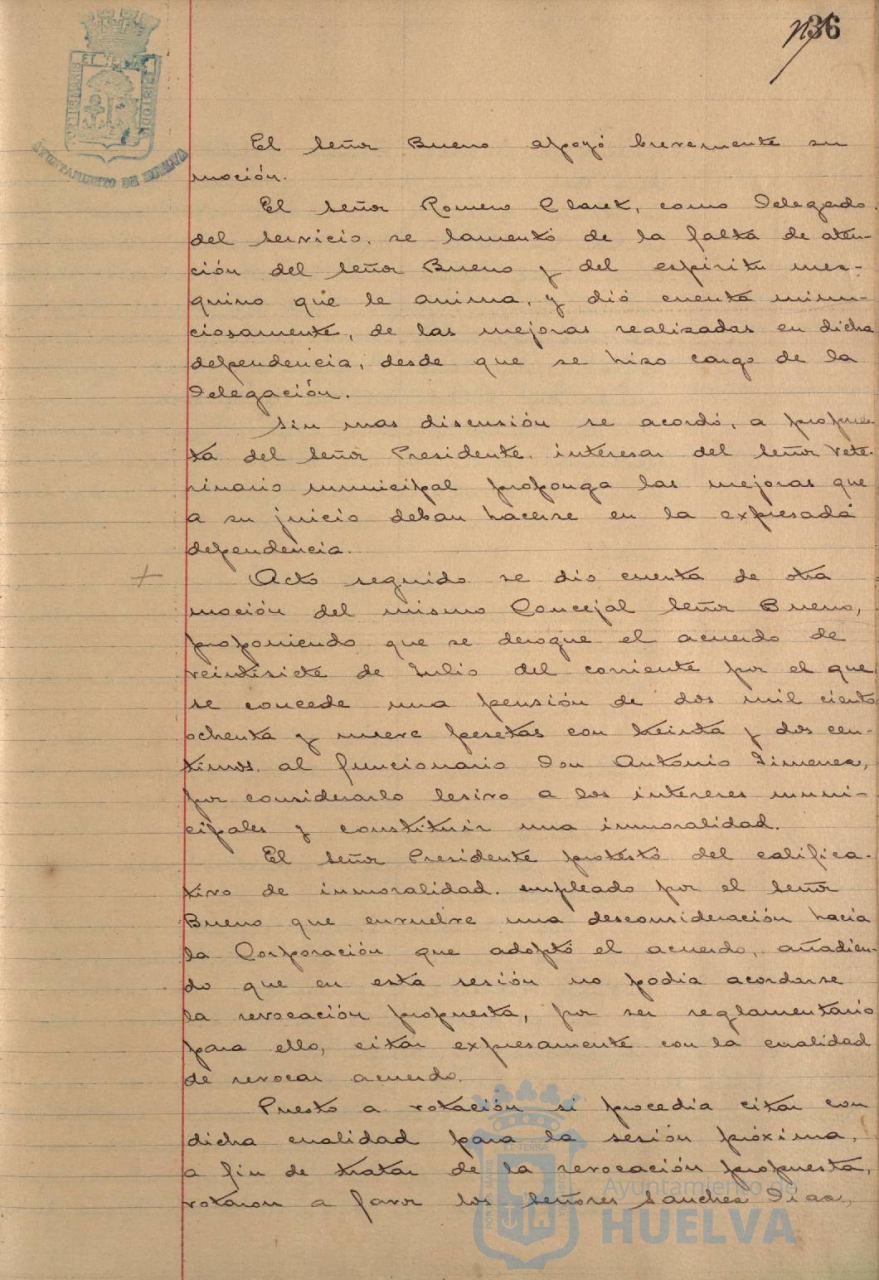 36
AYUNTAMIENTO DE HUELVA
El Señor Bueno apoyó brevemente su
moción.
El Señor Romero Claret, como Delegado
del servicio, se lamentó de la falta de aten-
ción del Señor Bueno y del espiritu mez-
quino que le anima, y dió cuenta minu-
ciosamente, de las mejoras realizadas en dicha
dependencia, desde que se hizo cargo de la
Delegación.
Sin mas discusión se acordó, a propues-
ta del Señor Presidente, interesar del Señor Vete-
rinario municipal proponga las mejoras que
a su juicio deban hacerse en la expresada
dependencia.
Acto seguido se dio cuenta de otra
moción del mismo Concejal Señor Bueno,
proponiendo que se derogue el acuerdo de
veintisiete de Julio del corriente por el que
se concede una pensión de dos mil ciento
ochenta y nueve pesetas con treinta y dos cen-
timos, al funcionario Don Antonio Jimenez,
por considerarlo lesivo a los intereses muni-
cipales y constituir una inmoralidad.
El Señor Presidente protestó del califica-
tivo de inmoralidad, empleado por el Señor
Bueno que envuelve una desconsideración hacia
la Corporación que adoptó el acuerdo, añadien-
do que en esta sesión no podia acordarse
la revocación propuesta, por ser reglamentario
para ello, citar expresamente con la cualidad
de revocar acuerdo.
Puesto a votación si procedia citar con
dicha cualidad para la sesión próxima,
a fin de tratar de la revocación propuesta,
votaron a favor los Señores Sanchez Diaz,
Ayuntamiento de
HUELVA